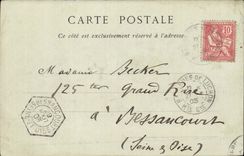 CARTE POSTALE
Ce côté est exclusivement réservé à l'adresse
10
Madame Becker
125 ter Grand Rue
à Bessancourt
(Seine & Oise)